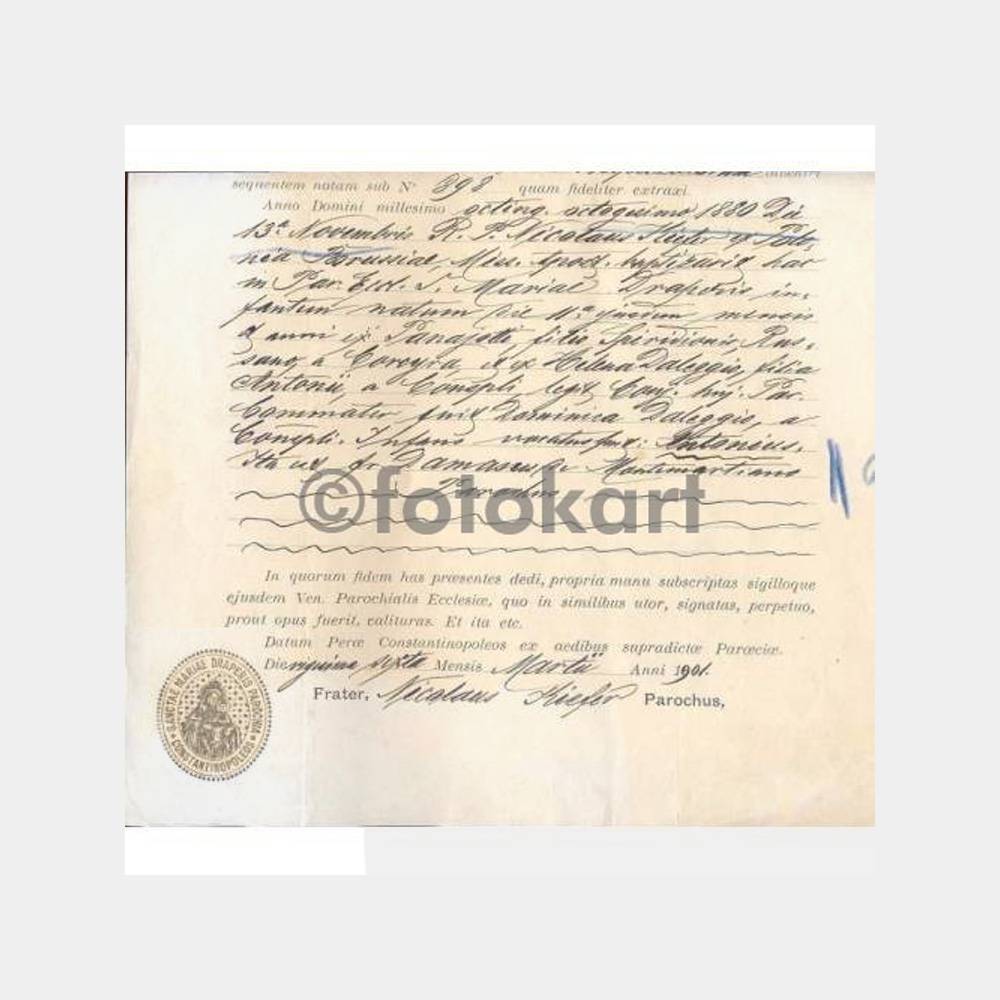 sequentem notam sub N° 898 quam fideliter extraxi.
Anno Domini millesimo octing. octogesimo 1880 Die
13ª Novembris R. P. Nicolaus Kiefer
Borussiae, Miss. Apost. baptizavit hac
in Par. Eccl. S. Mariae Draperis in-
fantem natum die 11ª mensis
anni ex Panajotti filio Spiridionis,
a Corcyra, et ex Helena Daleggio, filia
Antonii, a Constpli, legit. Conj. huj. Par.
Commater fuit Dominica Daleggio, a
Constpli. Infans vocatus fuit: Antonius.
Ita est fr. Damascus
Parochus
©fotokart
In quorum fidem has præsentes dedi, propria manu subscriptas sigilloque
ejusdem Ven. Parochialis Ecclesiæ, quo in similibus utor, signatas, perpetuo,
prout opus fuerit, valituras. Et ita etc.
Datum Peræ Constantinopoleos ex aedibus supradictæ Parœciæ.
Die sexta Mensis Martii Anni 1901.
Frater, Nicolaus Kiefer Parochus,
SANCTAE MARIAE DRAPERIS PAROCHIA
CONSTANTINOPOLEOS